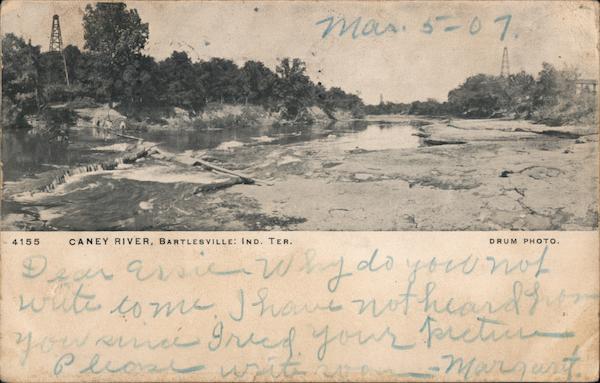 Mar. 5-07.
4155 CANEY RIVER, BARTLESVILLE: IND. TER. DRUM PHOTO.
Dear Essie - Why do you not
write to me. I have not heard from
you since I rec'd your picture
Please write soon - Margaret.